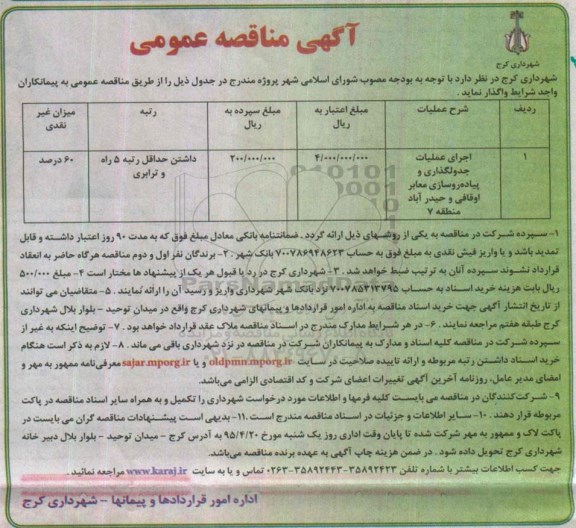 آگهی مناقصه عمومی
شهرداری کرج
شهرداری کرج در نظر دارد با توجه به بودجه مصوب شورای اسلامی شهر پروژه مندرج در جدول ذیل را از طریق مناقصه عمومی به پیمانکاران
واجد شرایط واگذار نماید .
ردیف شرح عملیات مبلغ اعتبار به ریال مبلغ سپرده به ریال رتبه میزان غیر نقدی
۱ اجرای عملیات جدولگذاری و پیاده‌روسازی معابر اوقافی و حیدر آباد منطقه ۷ ۴/۰۰۰/۰۰۰/۰۰۰ ۲۰۰/۰۰۰/۰۰۰ داشتن حداقل رتبه ۵ راه و ترابری ۶۰ درصد
۱- سپرده شرکت در مناقصه به یکی از روشهای ذیل ارائه گردد . ضمانتنامه بانکی معادل مبلغ فوق که به مدت ۹۰ روز اعتبار داشته و قابل
تمدید باشد و یا واریز فیش نقدی به مبلغ فوق به حساب ۷۰۰۷۸۶۹۴۸۶۲۳ بانک شهر . ۲- برندگان نفر اول و دوم مناقصه هرگاه حاضر به انعقاد
قرارداد نشوند سپرده آنان به ترتیب ضبط خواهد شد . ۳- شهرداری کرج در رد یا قبول هر یک از پیشنهاد ها مختار است ۴- مبلغ ۵۰۰/۰۰۰
ریال بابت هزینه خرید اسناد به حساب ۷۰۰۷۸۵۳۱۳۷۹۵ نزد بانک شهر شهرداری واریز و رسید آن را ارائه نمایند . ۵- متقاضیان می توانند
از تاریخ انتشار آگهی جهت خرید اسناد مناقصه به اداره امور قراردادها و پیمانهای شهرداری کرج واقع در میدان توحید - بلوار بلال شهرداری
کرج طبقه هفتم مراجعه نمایند . ۶- در هر شرایط مدارک مندرج در اسناد مناقصه ملاک عقد قرارداد خواهد بود . ۷- توضیح اینکه به غیر از
سپرده شرکت در مناقصه کلیه اسناد و مدارک به پیمانکاران شرکت در مناقصه در نزد شهرداری باقی می ماند . ۸- لازم به ذکر است هنگام
خرید اسناد داشتن رتبه مربوطه و ارائه تاییده صلاحیت در سایت oldpmn.mporg.ir و یا sajar.mporg.ir معرفی‌نامه ممهور به مهر و
امضای مدیر عامل، روزنامه آخرین آگهی تغییرات اعضای شرکت و کد اقتصادی الزامی می‌باشد.
۹- شرکت‌کنندگان در مناقصه می بایست کلیه فرمها و اطلاعات مورد درخواست شهرداری را تکمیل و به همراه سایر اسناد مناقصه در پاکت
مربوطه قرار دهند . ۱۰- سایر اطلاعات و جزئیات در اسناد مناقصه مندرج است .۱۱- بدیهی است پیشنهادات مناقصه گران می بایست در
پاکت لاک و ممهور به مهر شرکت شده تا پایان وقت اداری روز یک شنبه مورخ ۹۵/۴/۲۰ به آدرس کرج - میدان توحید - بلوار بلال دبیر خانه
شهرداری کرج تحویل داده شود . در ضمن هزینه چاپ آگهی به عهده برنده مناقصه می‌باشد.
جهت کسب اطلاعات بیشتر با شماره تلفن ۳۵۸۹۲۴۲۳-۳۵۸۹۲۴۴۳-۰۲۶۳ تماس و یا به سایت www.karaj.ir مراجعه نمائید .
اداره امور قراردادها و پیمانها – شهرداری کرج